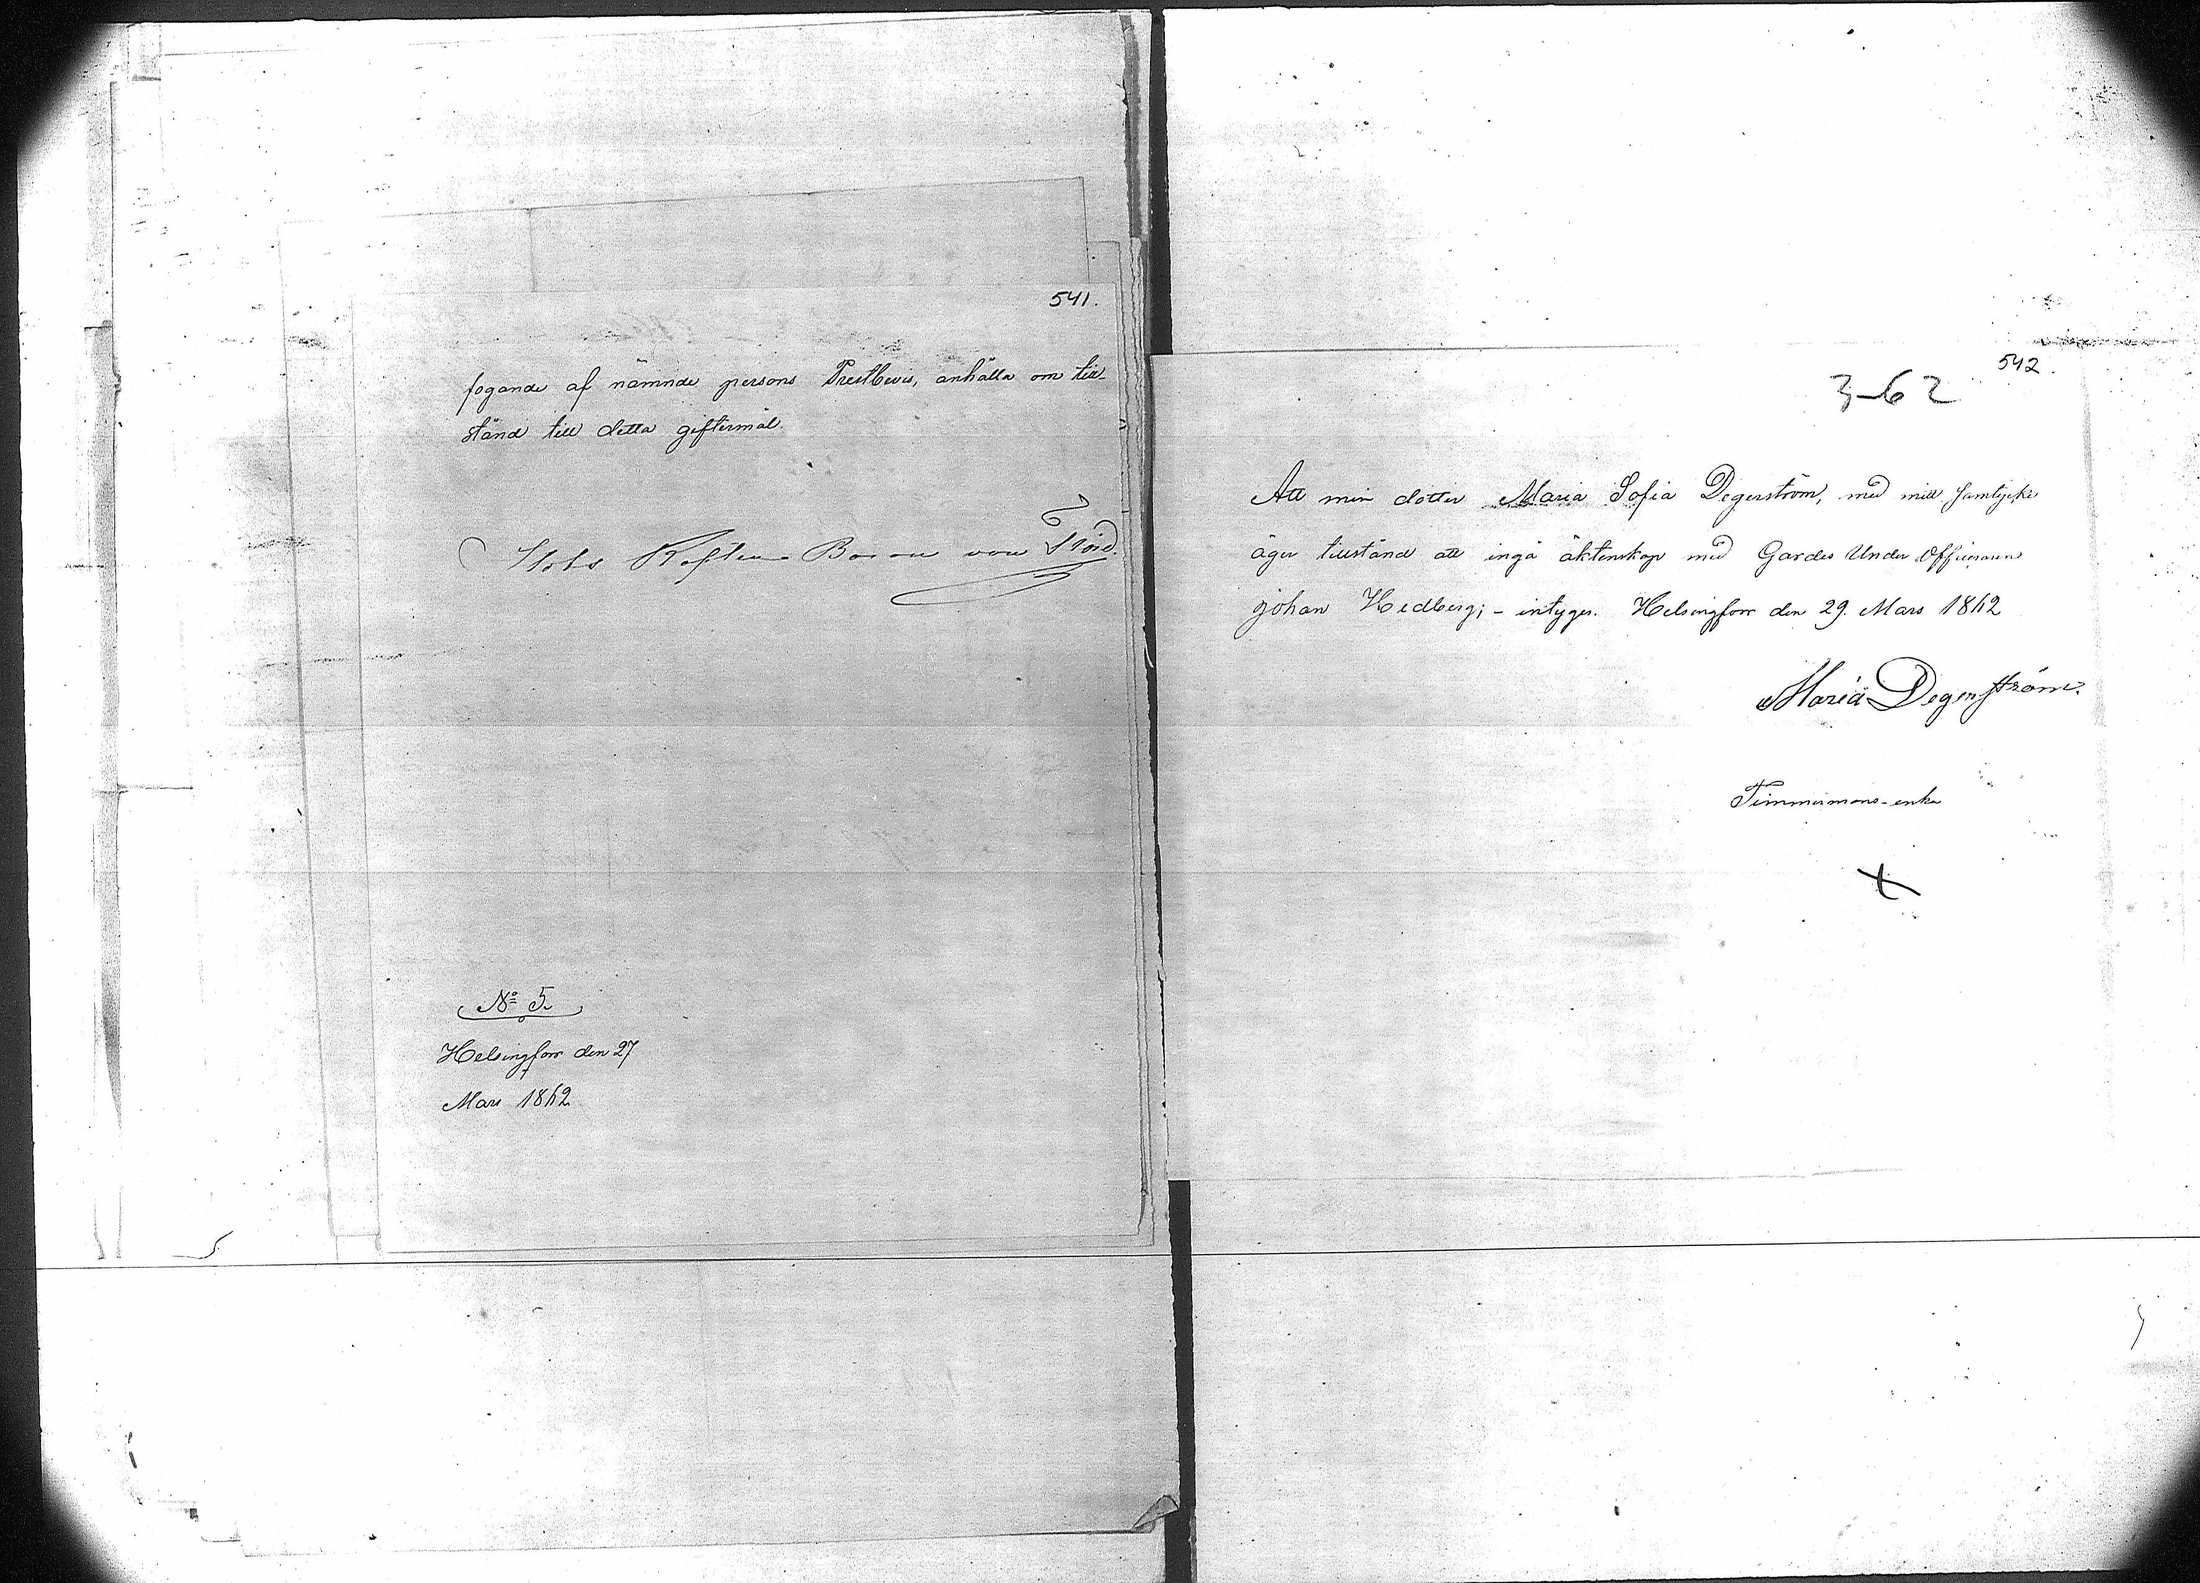 541.
fogande af nämnde persons Prestbevis, anhålla om till-
stånd till detta giftermål.
Stabs Kapten Baron von
No 5.
Helsingfors den 27
Mars 1862
542.
3-62
Att min dotter Maria Sofia Degerström, med mitt samtycke
äger tillstånd att ingå äktenskap med Gardes Under Officeraren
Johan Hedberg; - intygas. Helsingfors den 29. Mars 1862
Maria Degerström.
Timmermans-enka